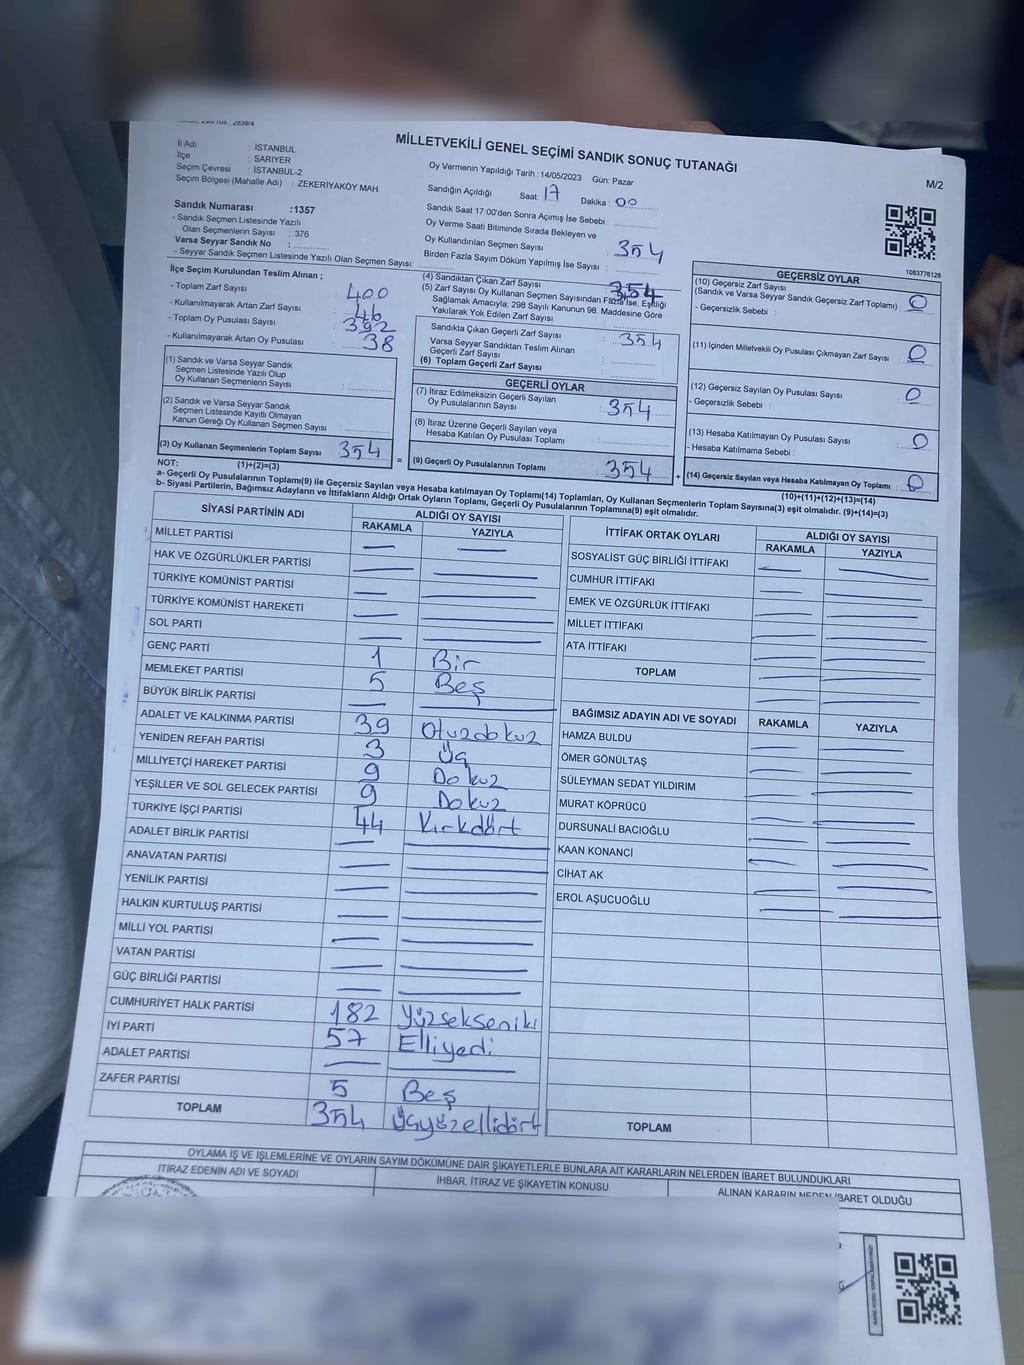 MİLLETVEKİLİ GENEL SEÇİMİ SANDIK SONUÇ TUTANAĞI
M/2
İl Adı : İSTANBUL
İlçe : SARIYER
Seçim Çevresi : İSTANBUL-2
Seçim Bölgesi (Mahalle Adı) : ZEKERİYAKÖY MAH.
Oy Vermenin Yapıldığı Tarih : 14/05/2023 Gün: Pazar
Sandığın Açıldığı Saat : 17 Dakika : 00
Sandık Saat 17:00'den Sonra Açılmış İse Sebebi :
Oy Verme Saati Bitiminde Sırada Bekleyen ve
Oy Kullandırılan Seçmen Sayısı : 354
Birden Fazla Sayım Döküm Yapılmış İse Sayısı :
Sandık Numarası :1357
- Sandık Seçmen Listesinde Yazılı
Olan Seçmenlerin Sayısı : 376
Varsa Seyyar Sandık No :
- Seyyar Sandık Seçmen Listesinde Yazılı Olan Seçmen Sayısı:
1083776128
İlçe Seçim Kurulundan Teslim Alınan ;
- Toplam Zarf Sayısı : 400
- Kullanılmayarak Artan Zarf Sayısı : 46
- Toplam Oy Pusulası Sayısı : 392
- Kullanılmayarak Artan Oy Pusulası : 38
(1) Sandık ve Varsa Seyyar Sandık
Seçmen Listesinde Yazılı Olup
Oy Kullanan Seçmenlerin Sayısı :
(2) Sandık ve Varsa Seyyar Sandık
Seçmen Listesinde Kayıtlı Olmayan
Kanun Gereği Oy Kullanan Seçmen Sayısı :
(3) Oy Kullanan Seçmenlerin Toplam Sayısı : 354
(1)+(2)=(3)
(4) Sandıktan Çıkan Zarf Sayısı : 354
(5) Zarf Sayısı Oy Kullanan Seçmen Sayısından Fazla İse, Eşitliği
Sağlamak Amacıyla, 298 Sayılı Kanunun 98. Maddesine Göre
Yakılarak Yok Edilen Zarf Sayısı :
Sandıkta Çıkan Geçerli Zarf Sayısı : 354
Varsa Seyyar Sandıktan Teslim Alınan
Geçerli Zarf Sayısı :
(6) Toplam Geçerli Zarf Sayısı :
GEÇERLİ OYLAR
(7) İtiraz Edilmeksizin Geçerli Sayılan
Oy Pusulalarının Sayısı : 354
(8) İtiraz Üzerine Geçerli Sayılan veya
Hesaba Katılan Oy Pusulası Toplamı :
= (9) Geçerli Oy Pusulalarının Toplamı : 354 +
GEÇERSİZ OYLAR
(10) Geçersiz Zarf Sayısı
(Sandık ve Varsa Seyyar Sandık Geçersiz Zarf Toplamı) : 0
- Geçersizlik Sebebi :
(11) İçinden Milletvekili Oy Pusulası Çıkmayan Zarf Sayısı : 0
(12) Geçersiz Sayılan Oy Pusulası Sayısı : 0
- Geçersizlik Sebebi :
(13) Hesaba Katılmayan Oy Pusulası Sayısı : 0
- Hesaba Katılmama Sebebi :
(14) Geçersiz Sayılan veya Hesaba Katılmayan Oy Toplamı : 0
(10)+(11)+(12)+(13)=(14)
NOT:
a- Geçerli Oy Pusulalarının Toplamı(9) ile Geçersiz Sayılan veya Hesaba katılmayan Oy Toplamı(14) Toplamları, Oy Kullanan Seçmenlerin Toplam Sayısına(3) eşit olmalıdır. (9)+(14)=(3)
b- Siyasi Partilerin, Bağımsız Adayların ve İttifakların Aldığı Ortak Oyların Toplamı, Geçerli Oy Pusulalarının Toplamına(9) eşit olmalıdır.
SİYASİ PARTİNİN ADI ALDIĞI OY SAYISI
RAKAMLA YAZIYLA
MİLLET PARTİSİ — —
HAK VE ÖZGÜRLÜKLER PARTİSİ — —
TÜRKİYE KOMÜNİST PARTİSİ — —
TÜRKİYE KOMÜNİST HAREKETİ — —
SOL PARTİ — —
GENÇ PARTİ 1 Bir
MEMLEKET PARTİSİ 5 Beş
BÜYÜK BİRLİK PARTİSİ — —
ADALET VE KALKINMA PARTİSİ 39 Otuzdokuz
YENİDEN REFAH PARTİSİ 3 Üç
MİLLİYETÇİ HAREKET PARTİSİ 9 Dokuz
YEŞİLLER VE SOL GELECEK PARTİSİ 9 Dokuz
TÜRKİYE İŞÇİ PARTİSİ 44 Kırkdört
ADALET BİRLİK PARTİSİ — —
ANAVATAN PARTİSİ — —
YENİLİK PARTİSİ — —
HALKIN KURTULUŞ PARTİSİ — —
MİLLİ YOL PARTİSİ — —
VATAN PARTİSİ — —
GÜÇ BİRLİĞİ PARTİSİ — —
CUMHURİYET HALK PARTİSİ 182 Yüzsekseniki
İYİ PARTİ 57 Elliyedi
ADALET PARTİSİ — —
ZAFER PARTİSİ 5 Beş
TOPLAM 354 Üçyüzellidört
İTTİFAK ORTAK OYLARI ALDIĞI OY SAYISI
RAKAMLA YAZIYLA
SOSYALİST GÜÇ BİRLİĞİ İTTİFAKI — —
CUMHUR İTTİFAKI — —
EMEK VE ÖZGÜRLÜK İTTİFAKI — —
MİLLET İTTİFAKI — —
ATA İTTİFAKI — —
TOPLAM — —
BAĞIMSIZ ADAYIN ADI VE SOYADI RAKAMLA YAZIYLA
HAMZA BULDU — —
ÖMER GÖNÜLTAŞ — —
SÜLEYMAN SEDAT YILDIRIM — —
MURAT KÖPRÜCÜ — —
DURSUNALİ BACIOĞLU — —
KAAN KONANCİ — —
CİHAT AK — —
EROL AŞUCUOĞLU — —
TOPLAM
OYLAMA İŞ VE İŞLEMLERİNE VE OYLARIN SAYIM DÖKÜMÜNE DAİR ŞİKAYETLERLE BUNLARA AİT KARARLARIN NELERDEN İBARET BULUNDUKLARI
İTİRAZ EDENİN ADI VE SOYADI İHBAR, İTİRAZ VE ŞİKAYETİN KONUSU ALINAN KARARIN NEDEN İBARET OLDUĞU